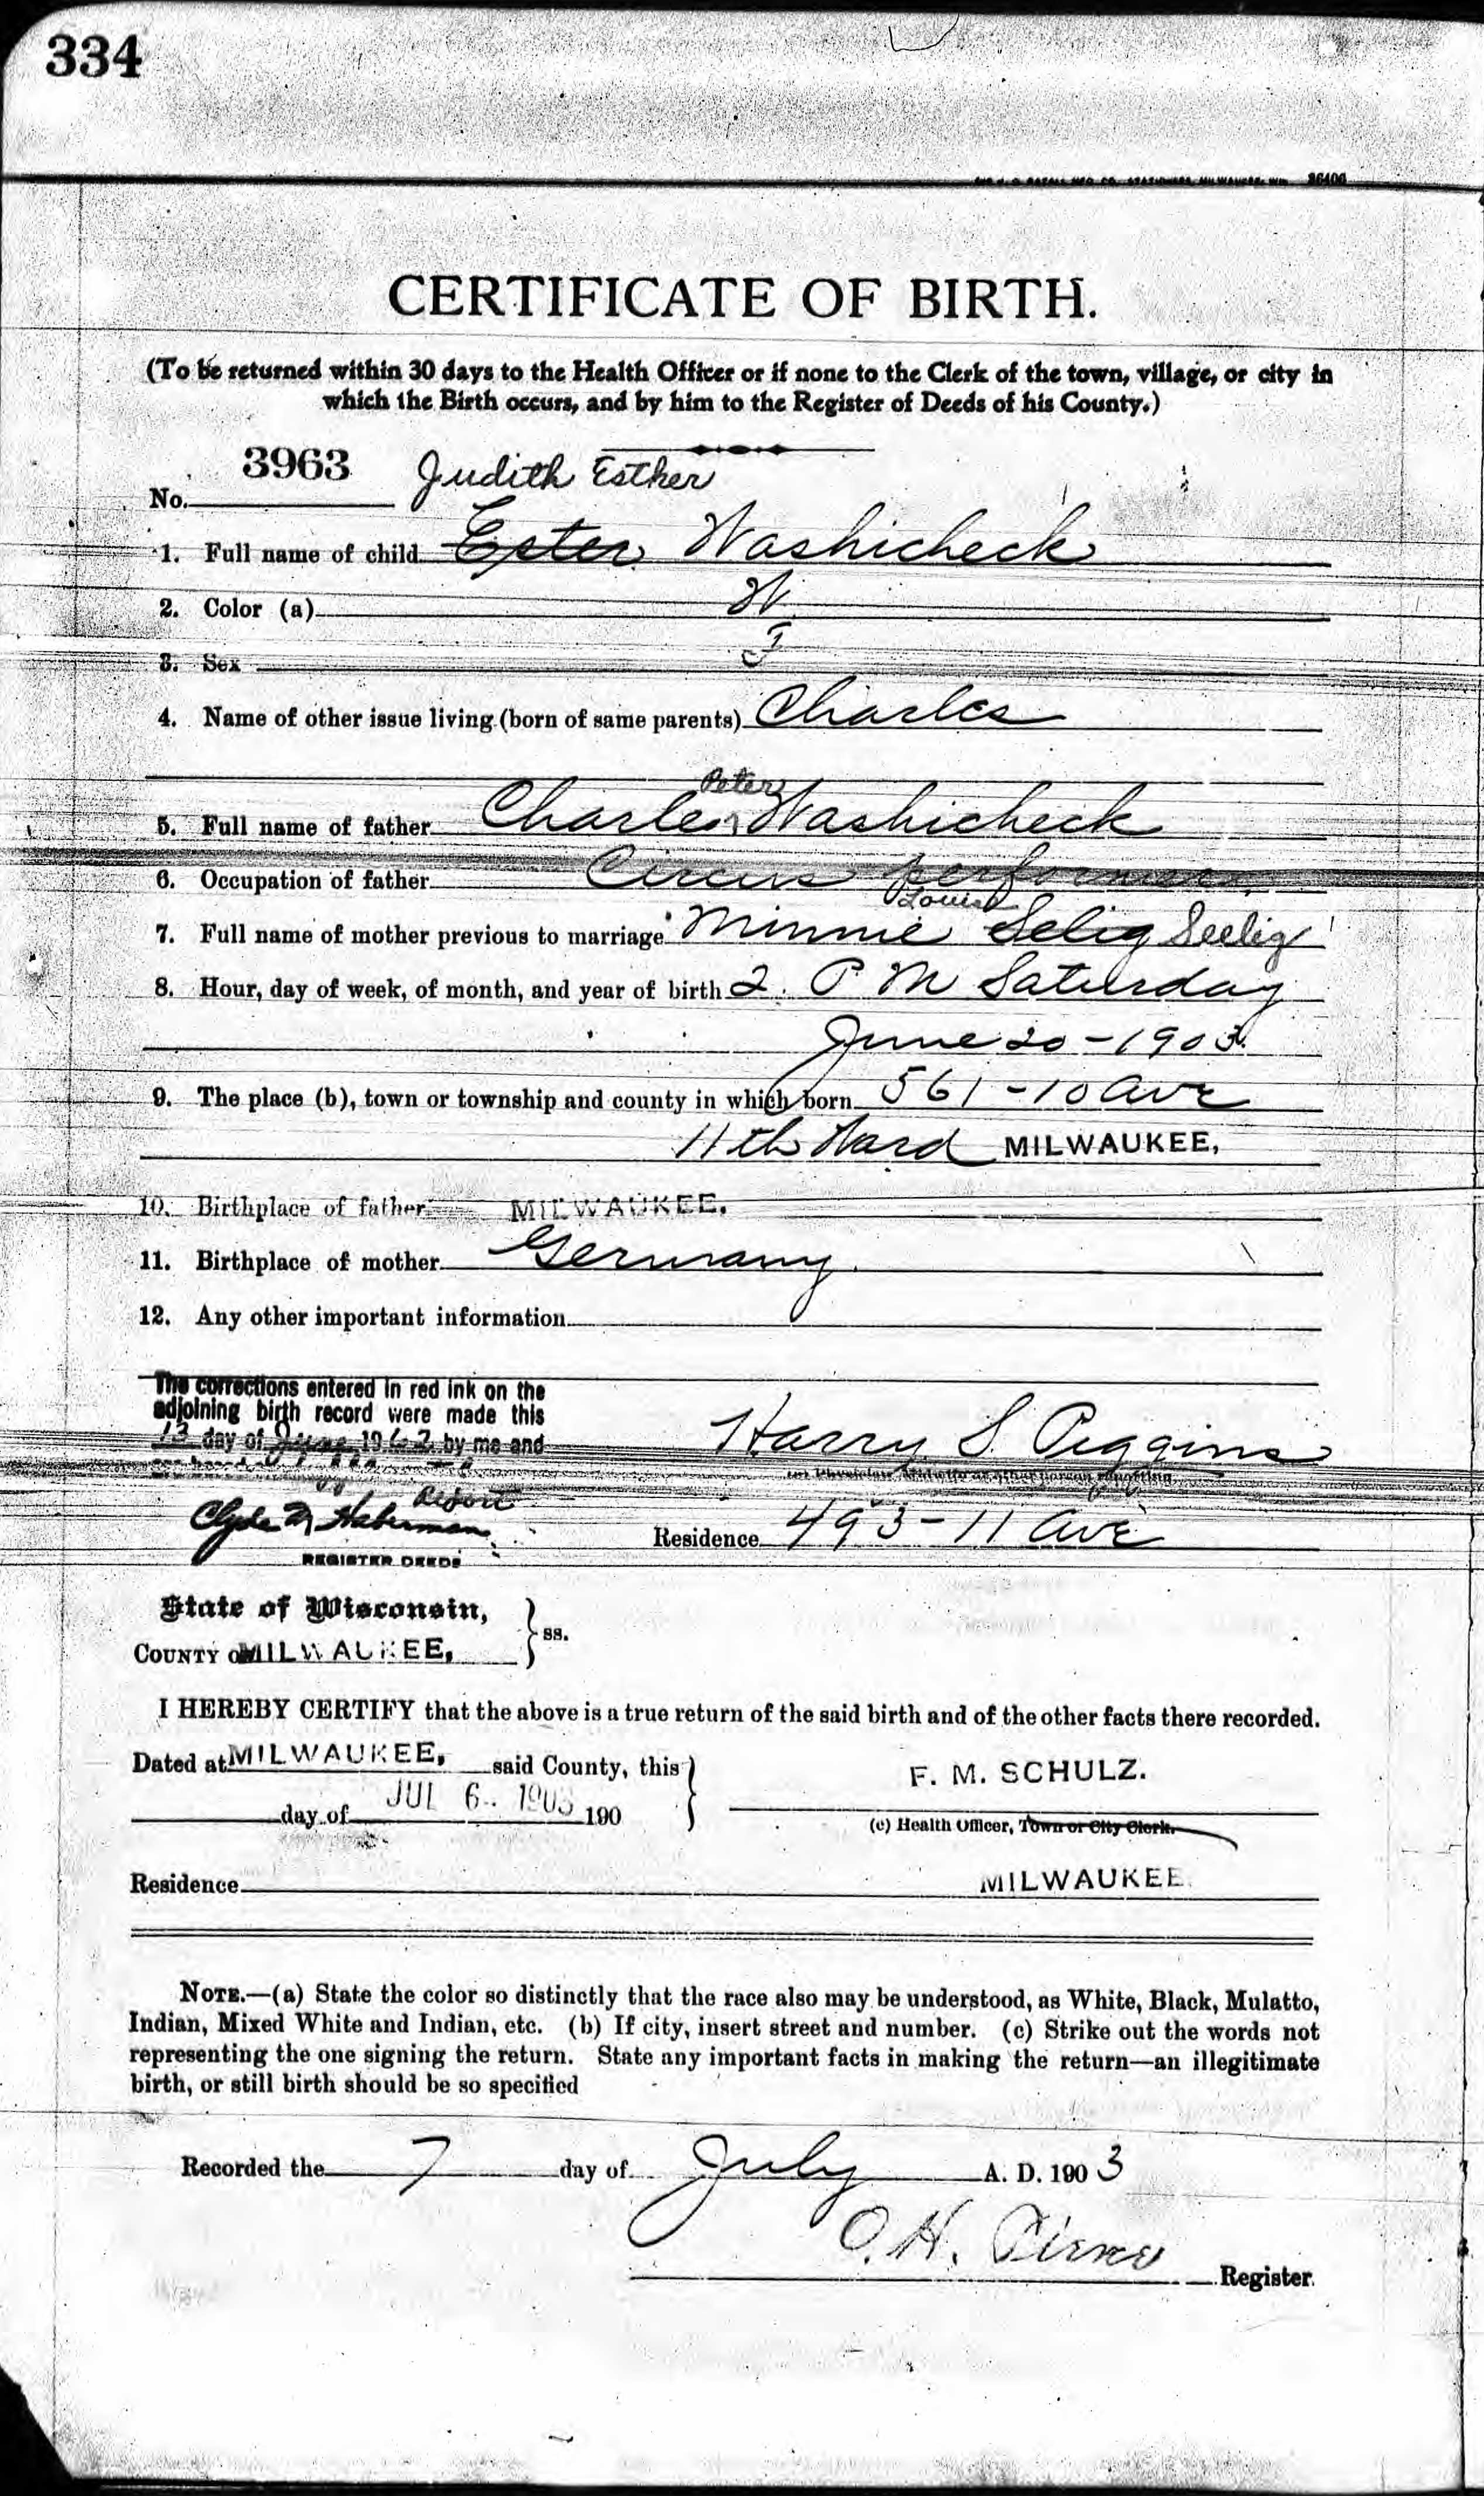 334
26400
CERTIFICATE OF BIRTH.
(To be returned within 30 days to the Health Officer or if none to the Clerk of the town, village, or city in
which the Birth occurs, and by him to the Register of Deeds of his County.)
No. 3963 Judith Esther
1. Full name of child Ester Washicheck
2. Color (a) W
3. Sex F
4. Name of other issue living (born of same parents) Charles
Peter
5. Full name of father Charles Washicheck
6. Occupation of father Circus performer
Louise
7. Full name of mother previous to marriage Minnie Selig Seelig
8. Hour, day of week, of month, and year of birth 2. P M Saturday
June 20-1903.
9. The place (b), town or township and county in which born 561-10 Ave
11th Ward MILWAUKEE,
10. Birthplace of father MILWAUKEE.
11. Birthplace of mother Germany.
12. Any other important information
The corrections entered in red ink on the
adjoining birth record were made this
13 day of June 1962 by me and
Harry S. Piggins
Clyde Haberman
REGISTER DEEDS
Residence 493-11 Ave
State of Wisconsin,
COUNTY OF MILWAUKEE, } ss.
I HEREBY CERTIFY that the above is a true return of the said birth and of the other facts there recorded.
Dated at MILWAUKEE, said County, this }
F. M. SCHULZ.
day of JUL 6. 1903 190
(c) Health Officer, Town or City Clerk.
Residence MILWAUKEE.
NOTE.—(a) State the color so distinctly that the race also may be understood, as White, Black, Mulatto,
Indian, Mixed White and Indian, etc. (b) If city, insert street and number. (c) Strike out the words not
representing the one signing the return. State any important facts in making the return—an illegitimate
birth, or still birth should be so specified
Recorded the 7 day of July A. D. 1903
O. H. Register.